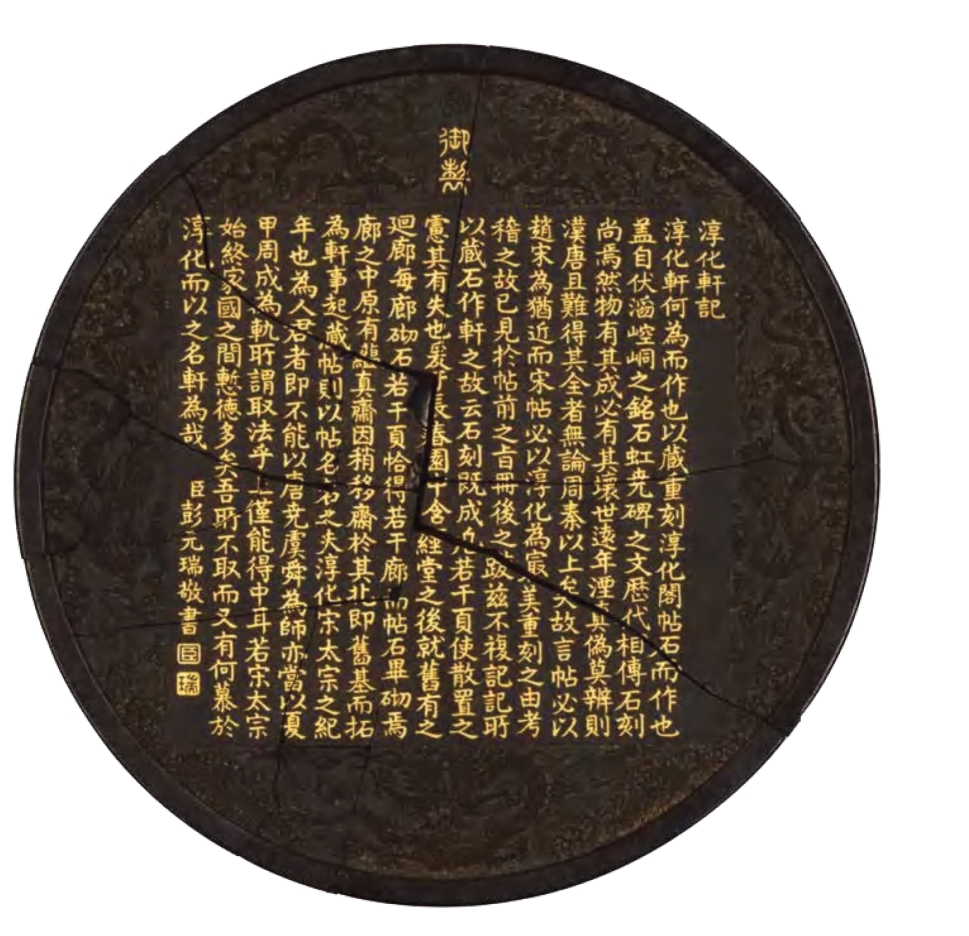 御製
淳化軒記
淳化軒何為而作也以藏重刻淳化閣帖石而作也
盖自伏滔崆峒之銘石虹尭碑之文歷代相傳石刻
尚焉然物有其成必有其壞世遠年湮真偽莫辨則
漢唐且難得其全者無論周秦以上矣故言帖必以
趙宋為猶近而宋帖必以淳化為冣美重刻之由考
稽之故已見於帖前之旨冊後之跋茲不複記記所
以藏石作軒之故云石刻既成凡若干頁使散置之
慮其有失也爰于長春園中含經堂之後就舊有之
廻廊每廊砌石若干頁恰得若干廊而帖石畢砌焉
廊之中原有蘊真齋因稍移齋於其北即舊基而拓
為軒事起藏帖則以帖名名之夫淳化宋太宗之紀
年也為人君者即不能以唐尭虞舜為師亦當以夏
甲周成為軌所謂取法乎上僅能得中耳若宋太宗
始終家國之間慙德多矣吾所不取而又有何慕於
淳化而以之名軒為哉
臣彭元瑞敬書
臣
瑞